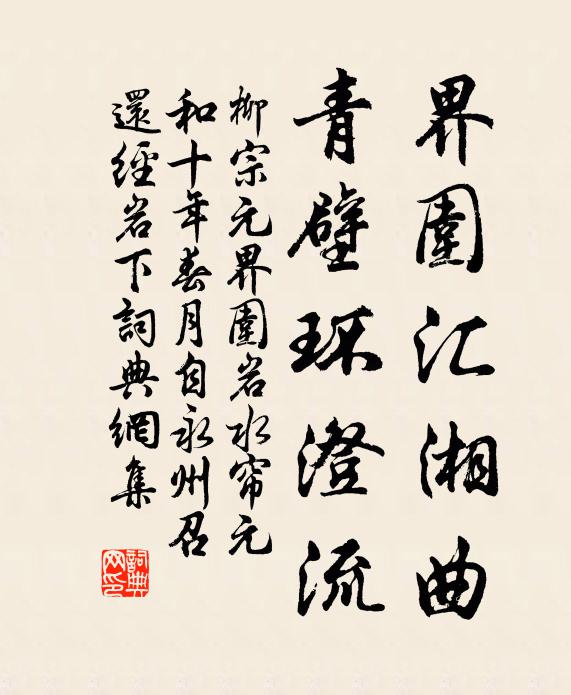 界圍汇湘曲
青壁环澄流
柳宗元界圍岩水帘元
和十年春月自永州召
還經岩下詞典網集
詞典
网印